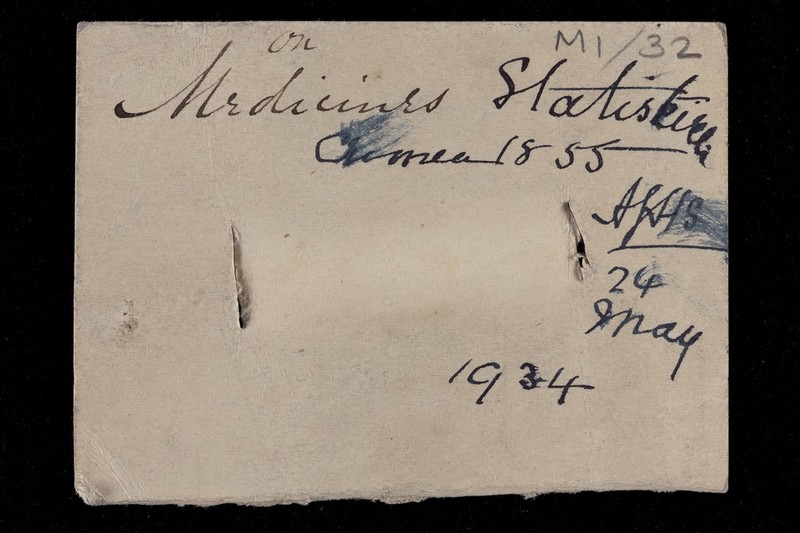 on
M1/32
Medicines Statistics
Crimea 1855
24
May
1934